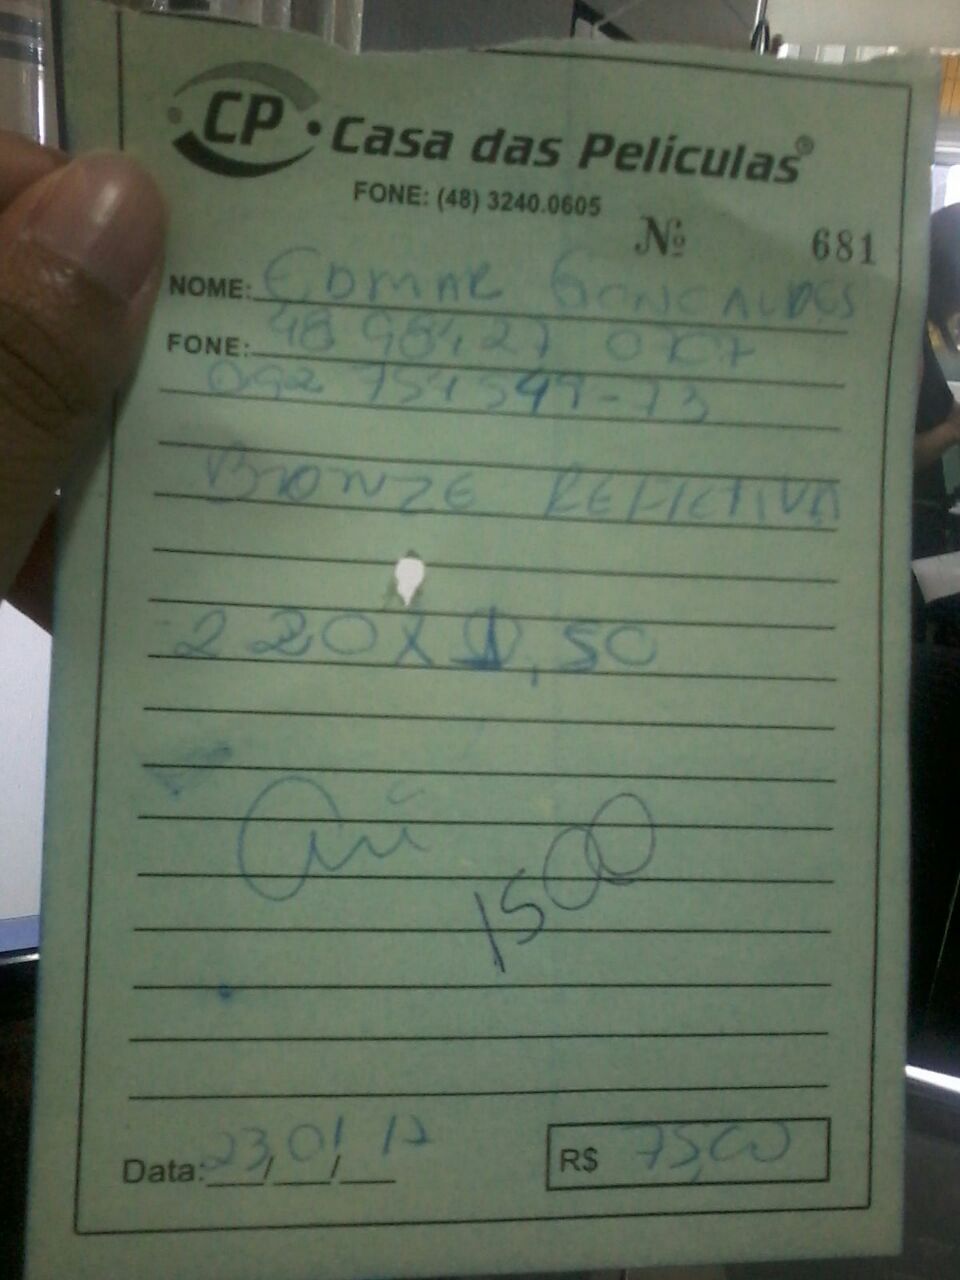 CP Casa das Películas®
FONE: (48) 3240.0605
Nº 681
NOME: EDMAR GONCALVES
FONE: 48 98427
092 754 549-73
BRONZE REFLETIVA
220 X 1,50
1500
Data: 23/01/12
R$ 75,00